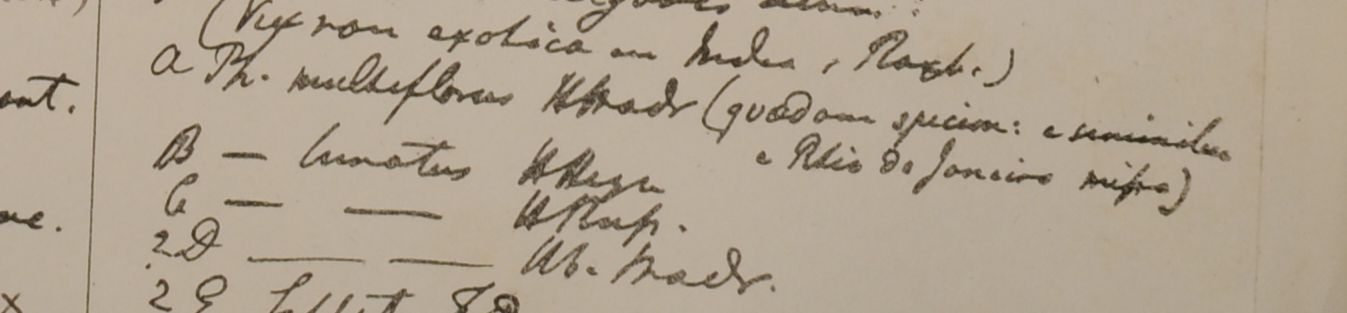 (Vix non exotica in India, Roxb.)
ont.
A Ph. multiflorus HMadr (quædam specim: e seminibus
e Rio de Janeiro missa)
B — lunatus HHeyn
C — — HRuf.
ne.
2D — — Hb. Madr.
2E
x